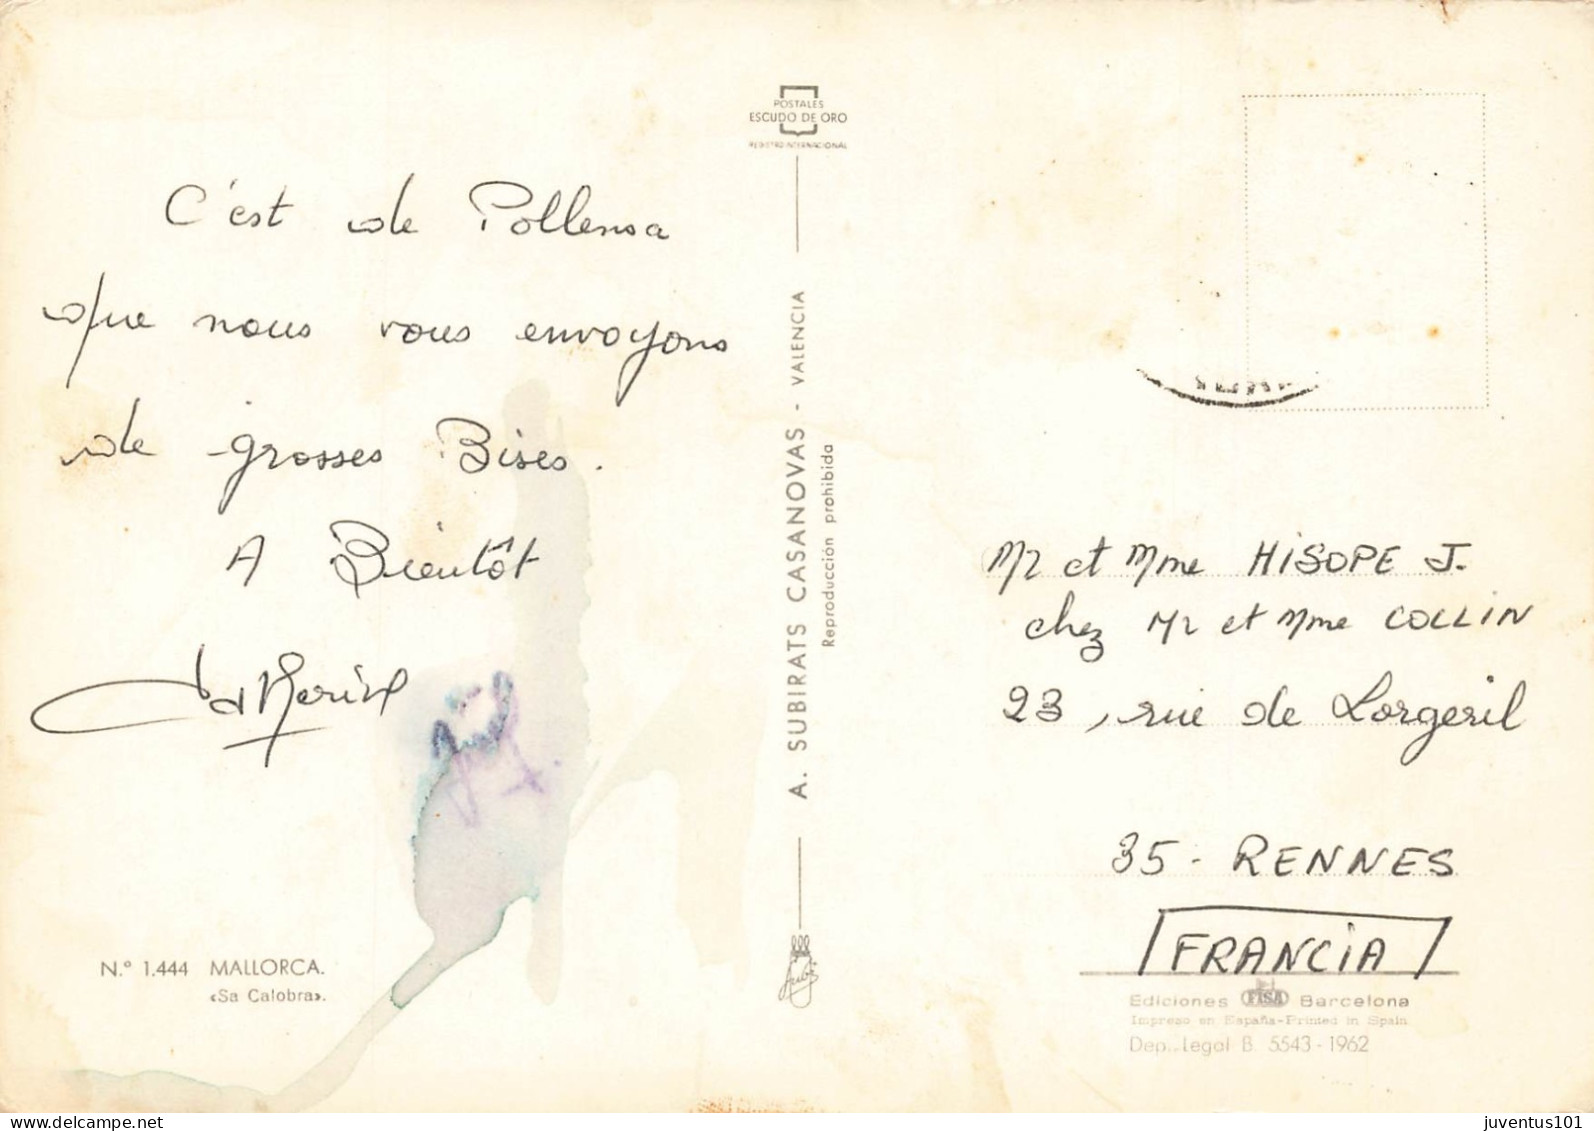 POSTALES
ESCUDO DE ORO
REGISTRO INTERNACIONAL
C'est de Pollensa
que nous vous envoyons
de grosses Bises.
A Bientôt
N.° 1.444 MALLORCA.
«Sa Calobra».
A. SUBIRATS CASANOVAS - VALENCIA
Reproducción prohibida
Mr et Mme HISOPE J.
chez Mr et Mme COLLIN
23, rue de Lorgeril
35 - RENNES
FRANCIA
Ediciones FISA Barcelona
Impreso en España - Printed in Spain
Dep. Legal B. 5543 - 1962
juventus101